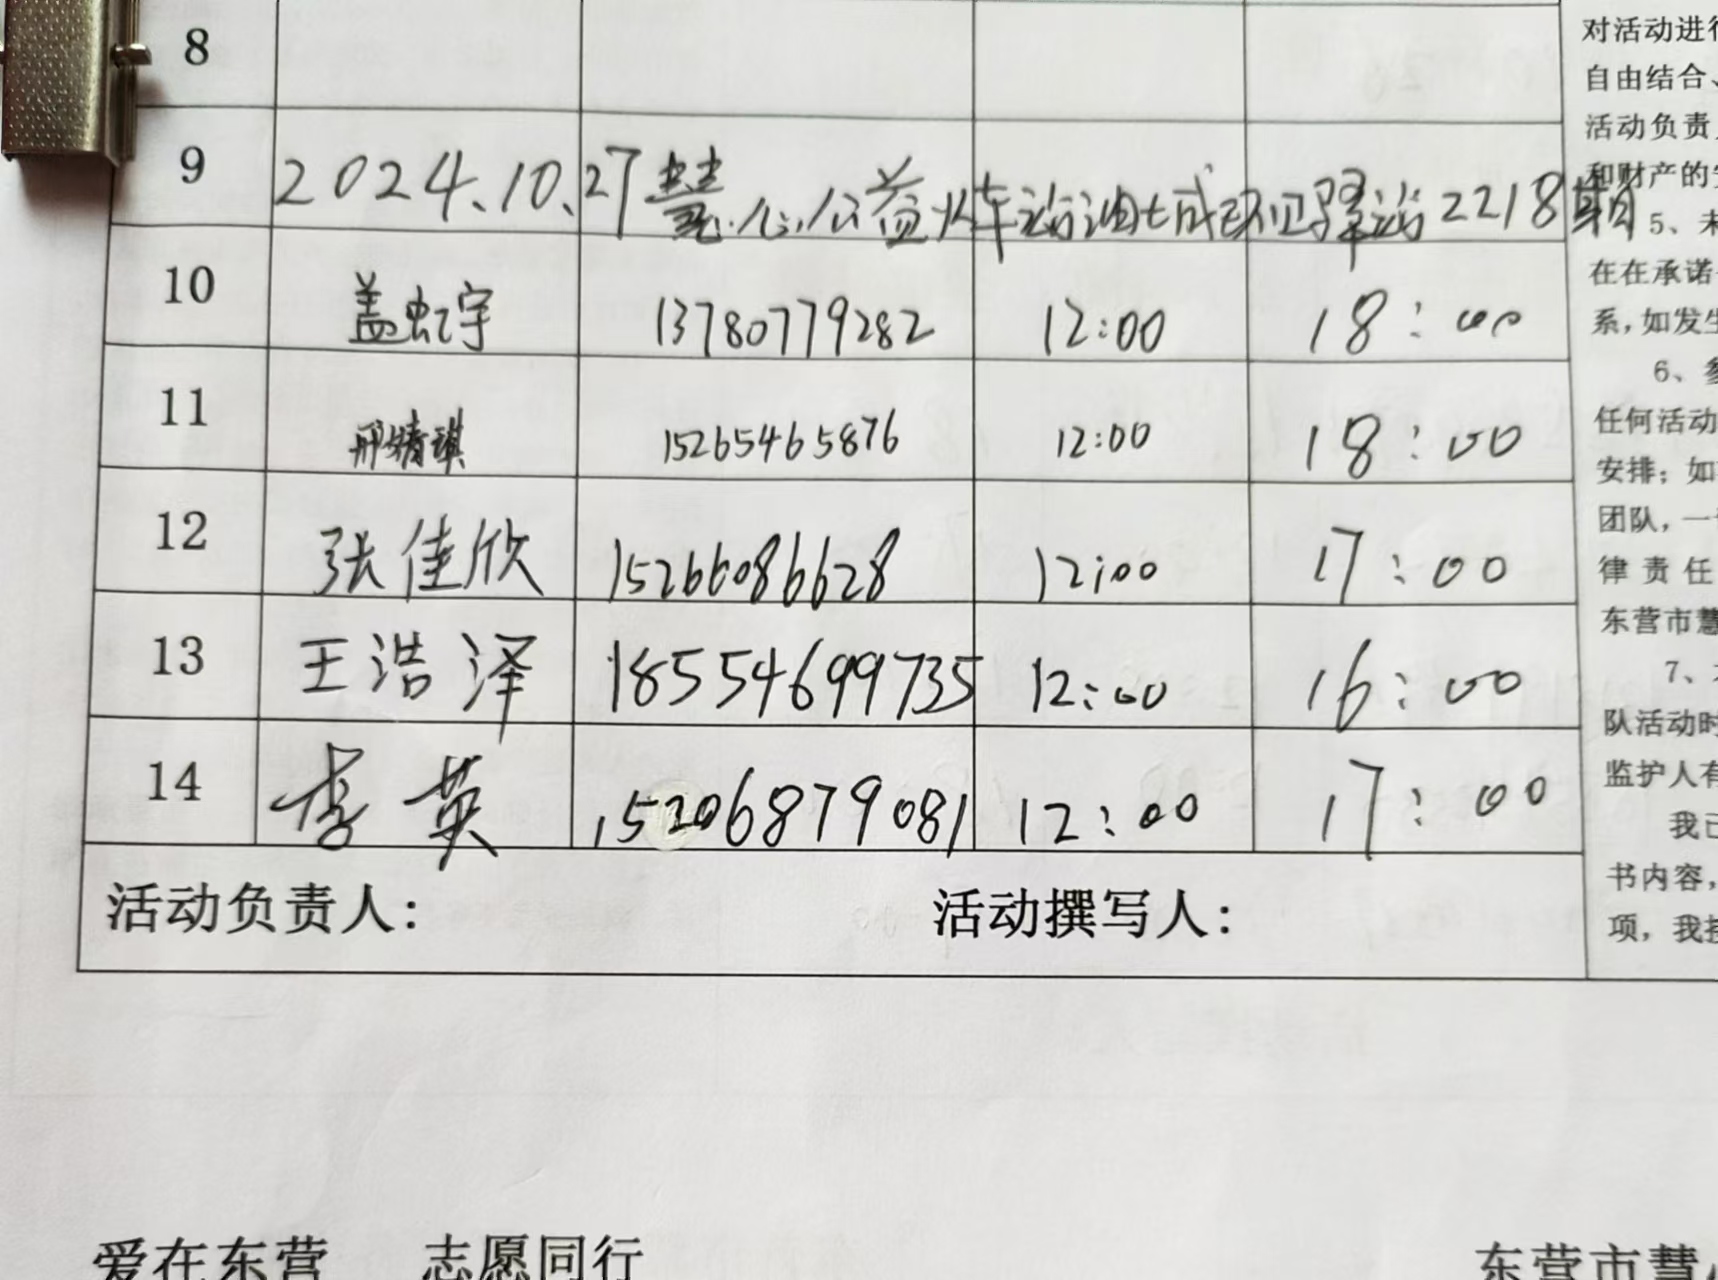 8
9 2024.10.27慧心公益火车站油城环卫驿站2218期
10 盖虹宇 13780779282 12:00 18:00
11 邢婧琪 15265465876 12:00 18:00
12 张佳欣 15266086628 12:00 17:00
13 王浩泽 18554699735 12:00 16:00
14 李英 15206879081 12:00 17:00
活动负责人: 活动撰写人:
对活动进行
自由结合、
活动负责
和财产的
5、未
在在承诺
系,如发生
6、参
任何活动
安排;如
团队,一
律责任
东营市慧
7、
队活动时
监护人有
我已
书内容,
项,我
爱在东营 志愿同行 东营市慧心